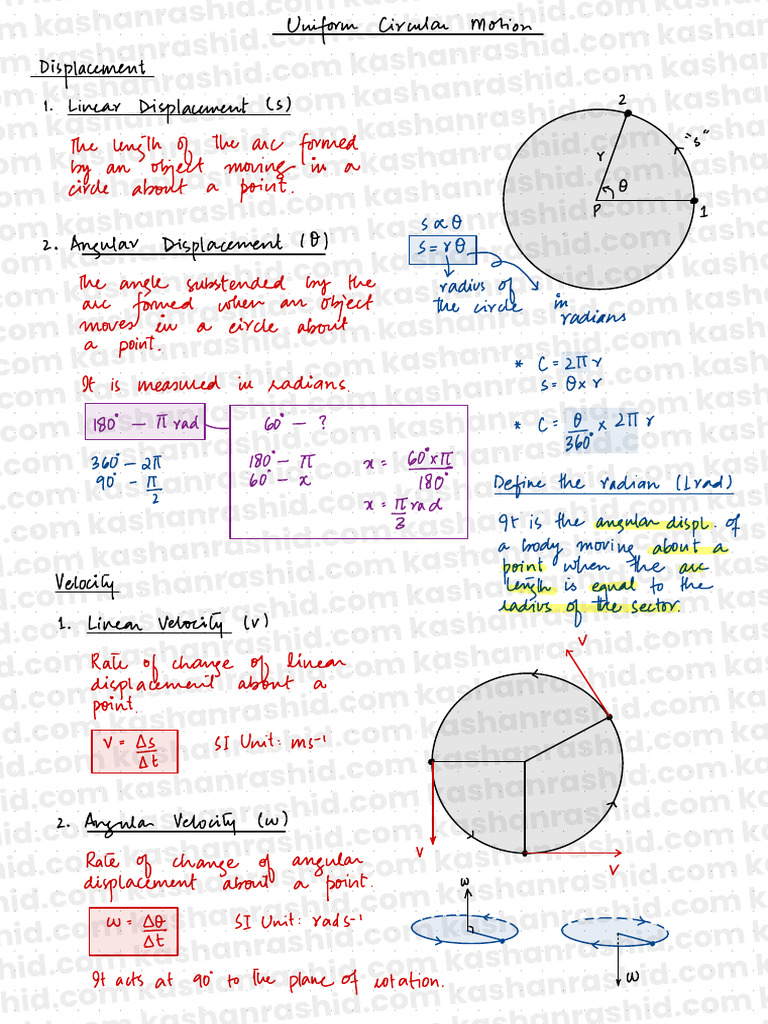 Uniform Circular Motion
Displacement
1. Linear Displacement (s)
The length of the arc formed
by an object moving in a
circle about a point.
2
"s"
r
θ
P
1
2. Angular Displacement (θ)
The angle substended by the
arc formed when an object
moves in a circle about
a point.
It is measured in radians.
s ∝ θ
s = rθ
radius of
the circle
in
radians
* C = 2πr
s = θ×r
* C = θ/360° × 2πr
180° — π rad
360° - 2π
90° - π/2
60° — ?
180° - π
60° - x
x = 60°×π/180°
x = π/3 rad
Define the radian (1rad)
It is the angular displ. of
a body moving about a
point when the arc
length is equal to the
radius of the sector.
Velocity
1. Linear Velocity (v)
Rate of change of linear
displacement about a
point.
v = Δs/Δt
SI Unit: ms⁻¹
v
v
v
2. Angular Velocity (ω)
Rate of change of angular
displacement about a point.
ω = Δθ/Δt
SI Unit: rads⁻¹
It acts at 90° to the plane of rotation.
ω
ω
kashanrashid.com